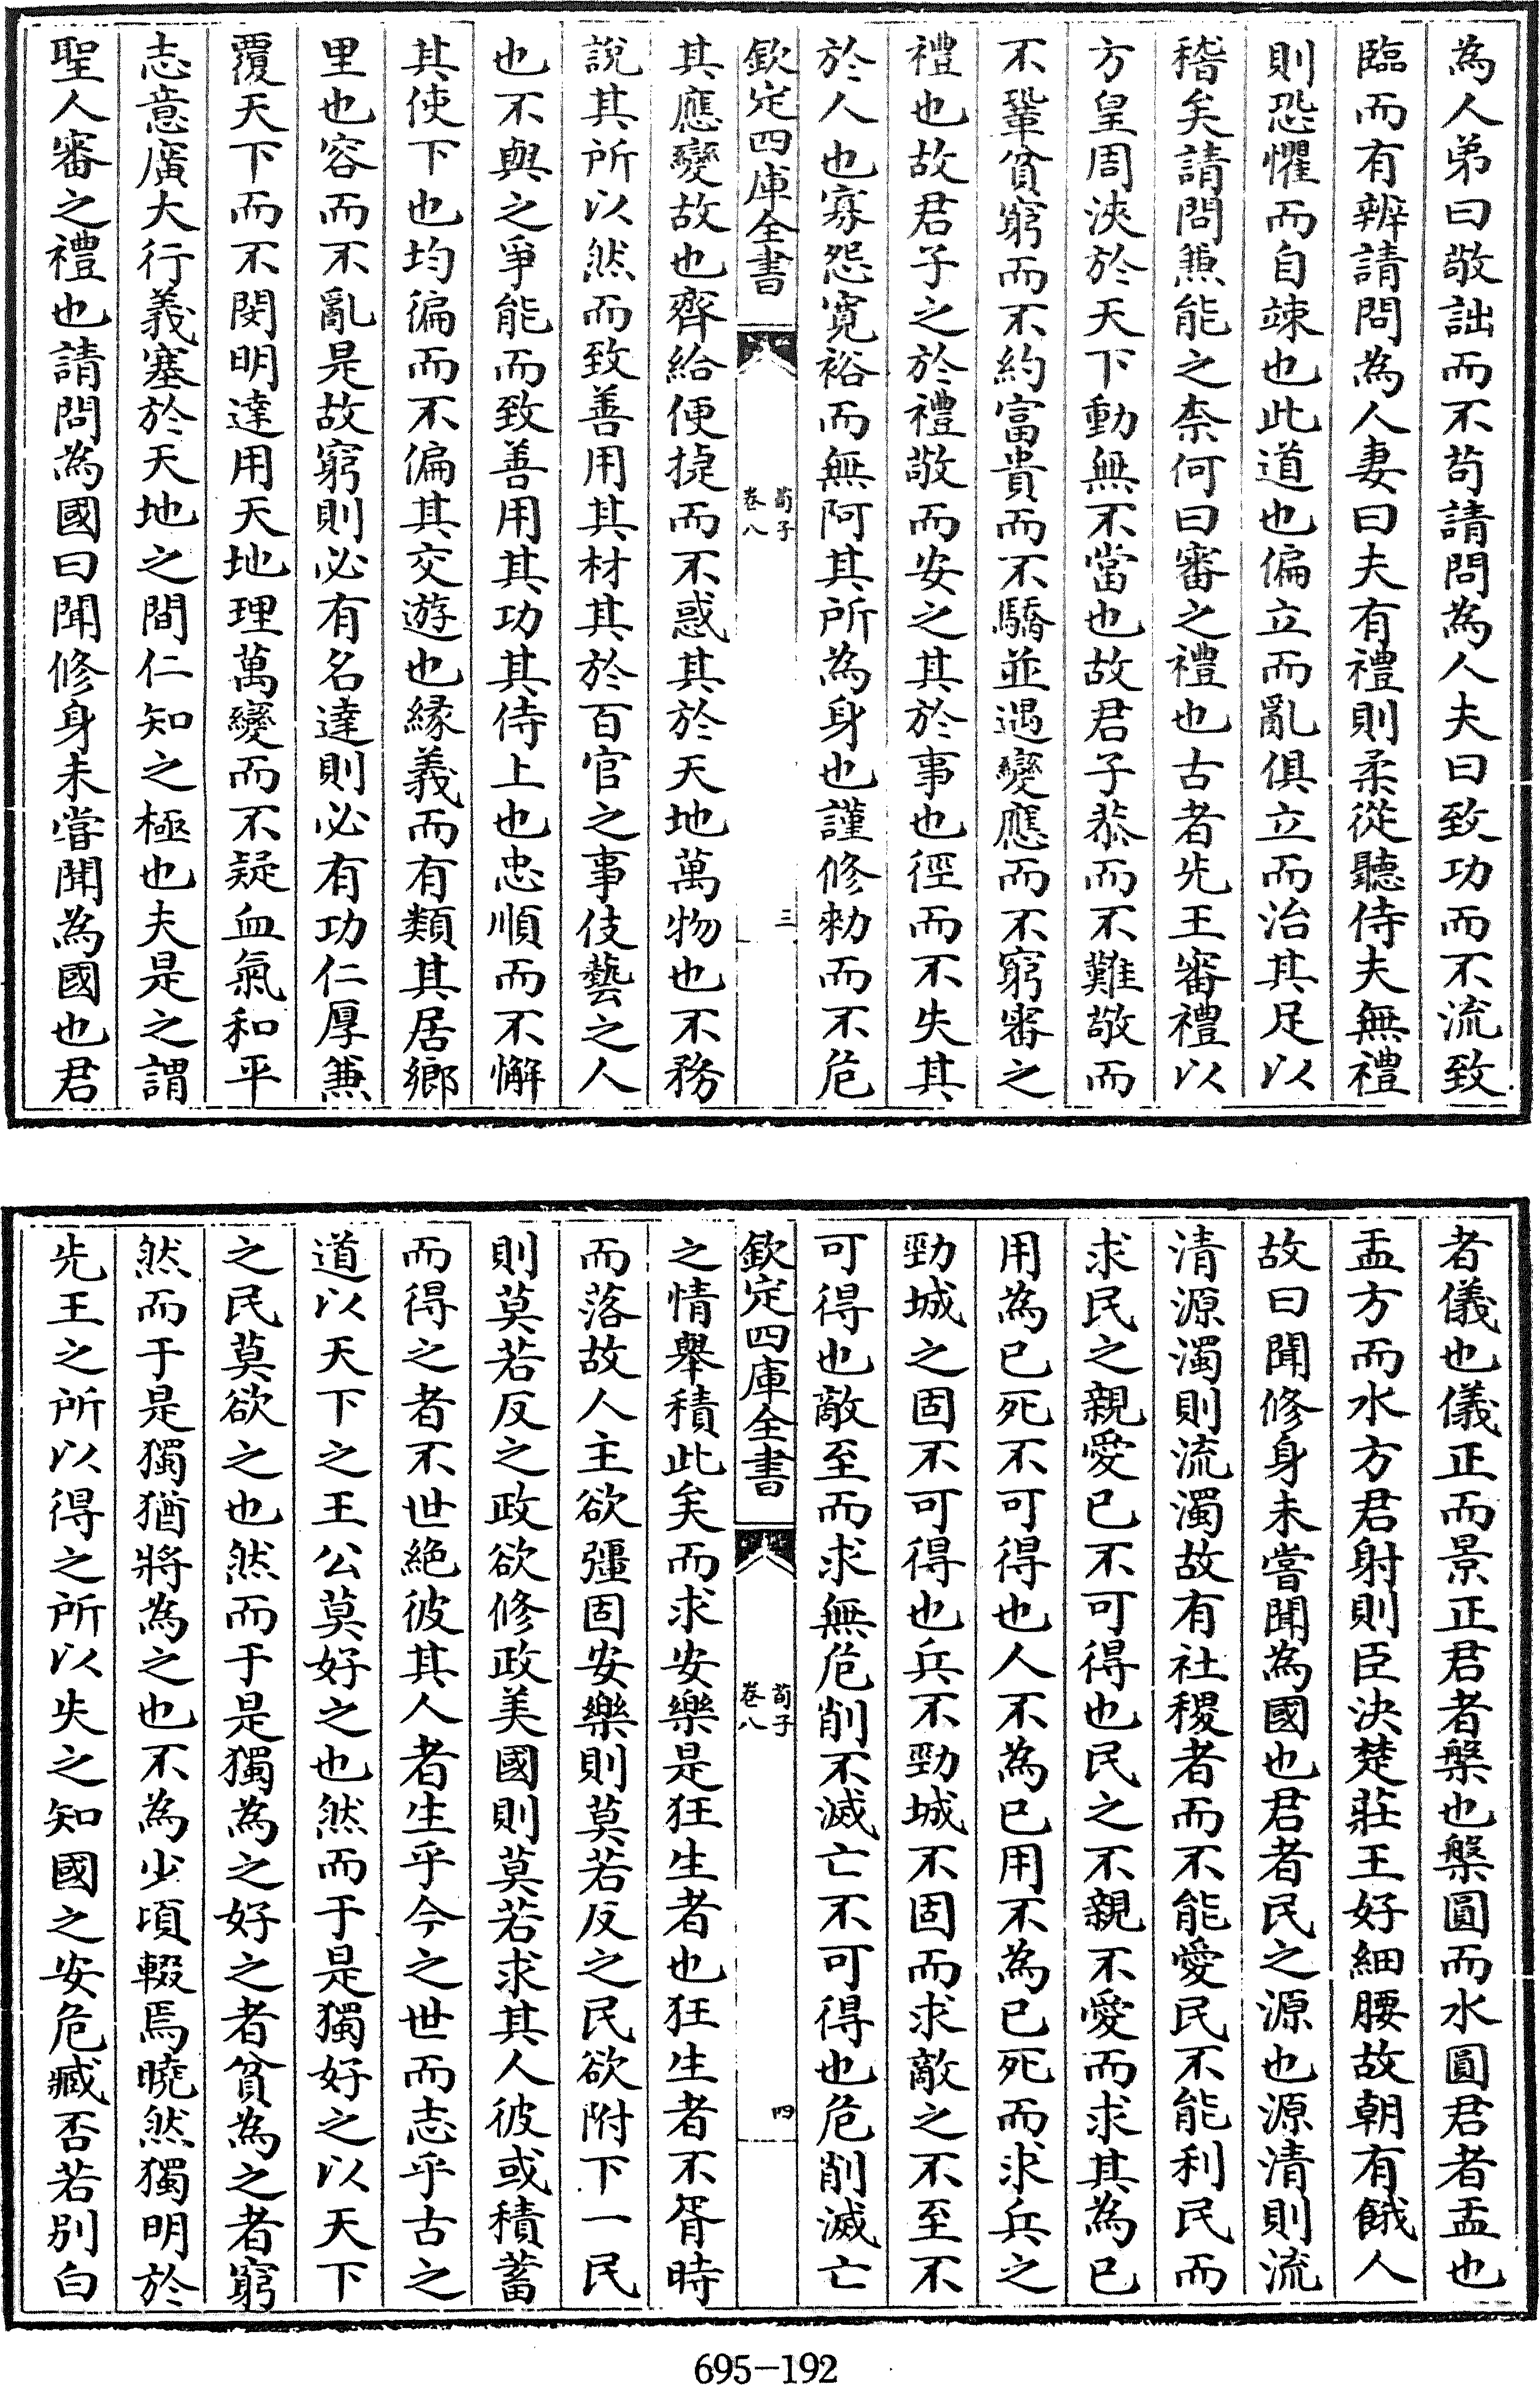 為人弟曰敬詘而不茍請問為人夫曰致功而不流致
臨而有辨請問為人妻曰夫有禮則柔從聽侍夫無禮
則恐懼而自竦也此道也偏立而亂俱立而治其足以
稽矣請問兼能之柰何曰審之禮也古者先王審禮以
方皇周浹於天下動無不當也故君子恭而不難敬而
不鞏貧窮而不約富貴而不驕並遇變應而不窮審之
禮也故君子之於禮敬而安之其於事也徑而不失其
於人也寡怨寛裕而無阿其所為身也謹修勑而不危
欽定四庫全書
荀子
卷八
三
其應變故也齊給便捷而不惑其於天地萬物也不務
說其所以然而致善用其材其於百官之事伎藝之人
也不與之爭能而致善用其功其侍上也忠順而不懈
其使下也均徧而不偏其交遊也縁義而有類其居鄉
里也容而不亂是故窮則必有名達則必有功仁厚兼
覆天下而不閔明達用天地理萬變而不疑血氣和平
志意廣大行義塞於天地之間仁知之極也夫是之謂
聖人審之禮也請問為國曰聞修身未嘗聞為國也君
者儀也儀正而景正君者槃也槃圓而水圓君者盂也
盂方而水方君射則臣決楚莊王好細腰故朝有餓人
故曰聞修身未嘗聞為國也君者民之源也源清則流
清源濁則流濁故有社稷者而不能愛民不能利民而
求民之親愛已不可得也民之不親不愛而求其為已
用為已死不可得也人不為已用不為已死而求兵之
勁城之固不可得也兵不勁城不固而求敵之不至不
可得也敵至而求無危削不滅亡不可得也危削滅亡
欽定四庫全書
荀子
卷八
四
之情舉積此矣而求安樂是狂生者也狂生者不胥時
而落故人主欲彊固安樂則莫若反之民欲附下一民
則莫若反之政欲修政美國則莫若求其人彼或積蓄
而得之者不世絶彼其人者生乎今之世而志乎古之
道以天下之王公莫好之也然而于是獨好之以天下
之民莫欲之也然而于是獨為之好之者貧為之者窮
然而于是獨猶將為之也不為少頃輟焉曉然獨明於
先王之所以得之所以失之知國之安危臧否若别白
695-192